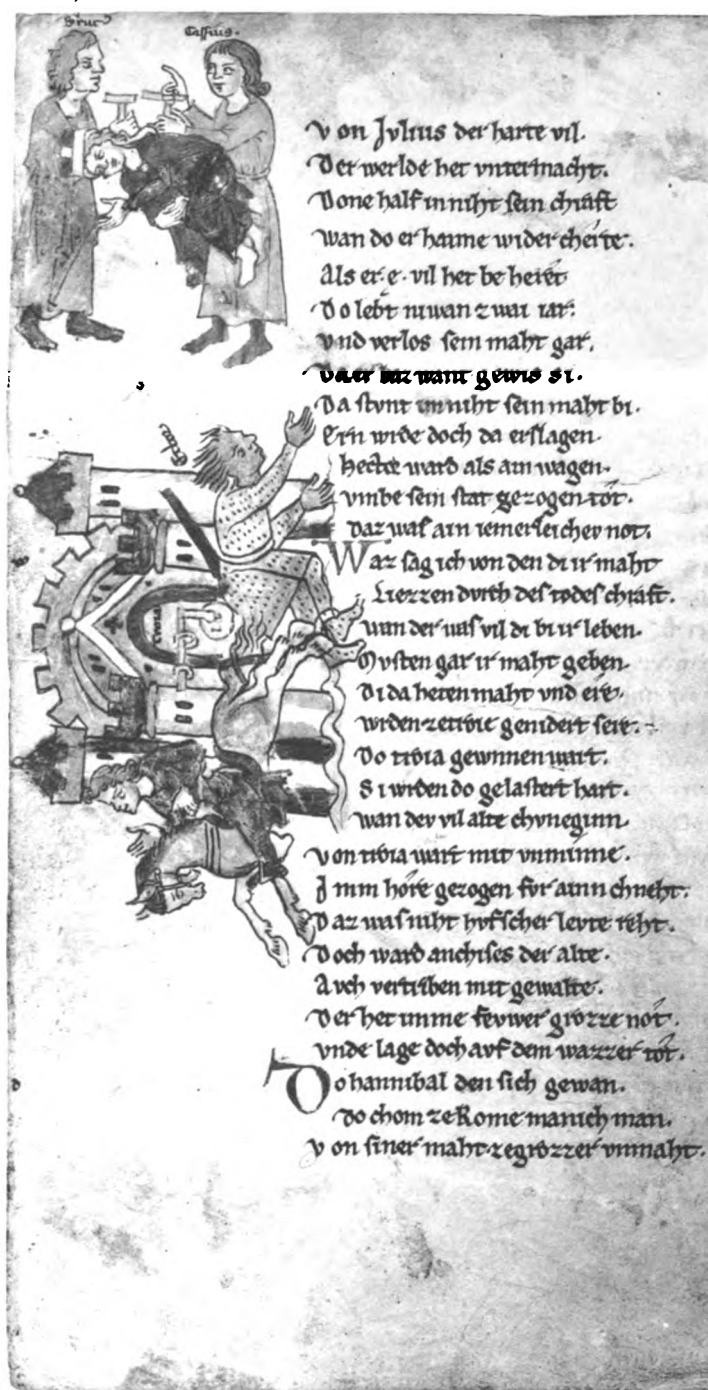 Cassius.
Von Jvlius der harte vil.
Der werlde het vntermacht.
Done half in niht sein chraft
wan do er haime wider cherte.
Als er.e.vil het be heret
Do lebt niwan zwai iar.
vnd verlos sein maht gar.
gewis si.
Da stvnt im niht sein maht bi.
Ern wrde doch da erslagen.
hector ward als am wagen.
vmbe sein stat gezogen tot.
daz was ain iemerleicher not.
Waz sag ich von den di ir maht
Liezzen dvrch des todes chraft.
wan der was vil di bi ir leben.
Mvsten gar ir maht geben.
Di da heten maht vnd ere.
wrden ze troie genidert sere.
Do troia gewnnen wart.
Si wrden do gelastert hart.
wan dev vil alte chvneginn.
von troia wart mit vnminne.
Imm hore gezogen for ainn chneht.
Daz was niht hvfscher levte reht.
Doch ward anchises der alte.
Avch vertriben mit gewalte.
Der het imme fevwer grozze not.
vnde lage doch avf dem wazzer tot.
Do hannibal den sich gewan.
do chom ze Rome manich man.
von siner maht.ze grozzer vnmaht.